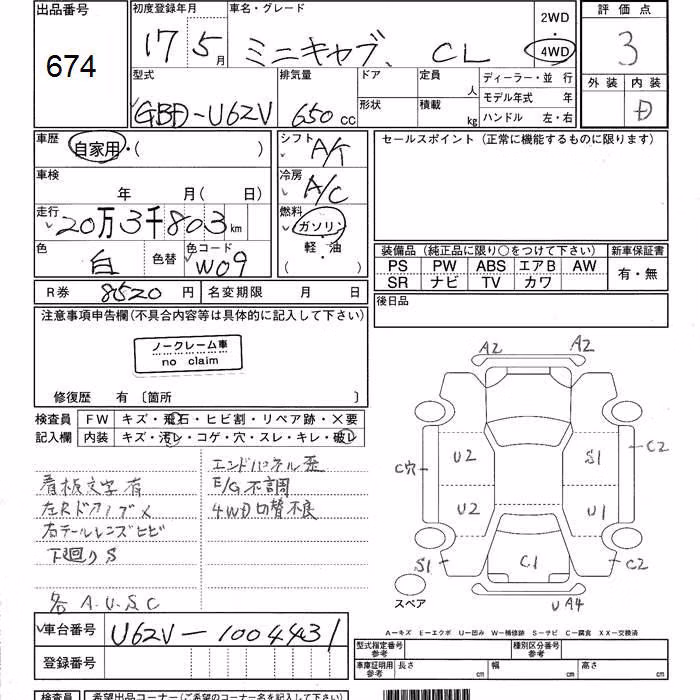 出品番号 初度登録年月 車名・グレード 2WD 評価点
674 17年5月 ミニキャブ、 CL 4WD 3
型式 排気量 ドア 定員 人 ディーラー・並 行 外装 内装
GBD-U62V 650cc 形状 積載 kg モデル年式 年 D
ハンドル 左・右
車歴 自家用・( ) シフト A/T セールスポイント (正常に機能するものに限ります)
車検 年 月( 日) 冷房 A/C
走行 20万3千803km 燃料 ガソリン・
色 白 色替 色コード W09 軽・油 ( )
装備品 (純正品に限り○をつけて下さい) 新車保証書
PS PW ABS エアB AW 有・無
SR ナビ TV カワ
R券 8520円 名変期限 月 日 後日品
注意事項申告欄(不具合内容等は具体的に記入して下さい)
ノークレーム車
no claim
修復歴 有 〔箇所 〕
検査員 FW キズ・飛石・ヒビ割・リペア跡・×要
記入欄 内装 キズ・汚レ・コゲ・穴・スレ・キレ・破レ
エンドパネル歪
看板文字有 E/G不調
左Rドアノブ× 4WD切替不良
右テールレンズヒビ
下廻りS
各 A.U.S.C
A2 A2
U2 S1 C2
C穴
U2 U1
S1 C1 C2
スペア U A4
A－キズ E－エクボ U－凹み W－補修跡 S－サビ C－腐食 XX－交換済
車台番号 U62V-1004431
登録番号
型式指定番号 参考 種別区分番号 参考
車庫証明用 参考 長さ cm 幅 cm 高さ cm
検査員 希望出品コーナー(ご希望のコーナー名を記入して下さい)